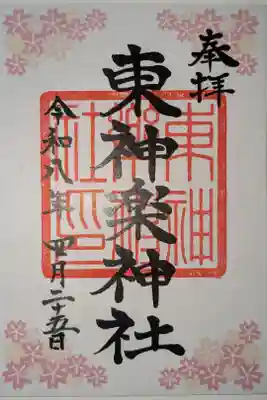 奉拝
東神楽神社
東神楽神社印
令和八年 四月二十五日